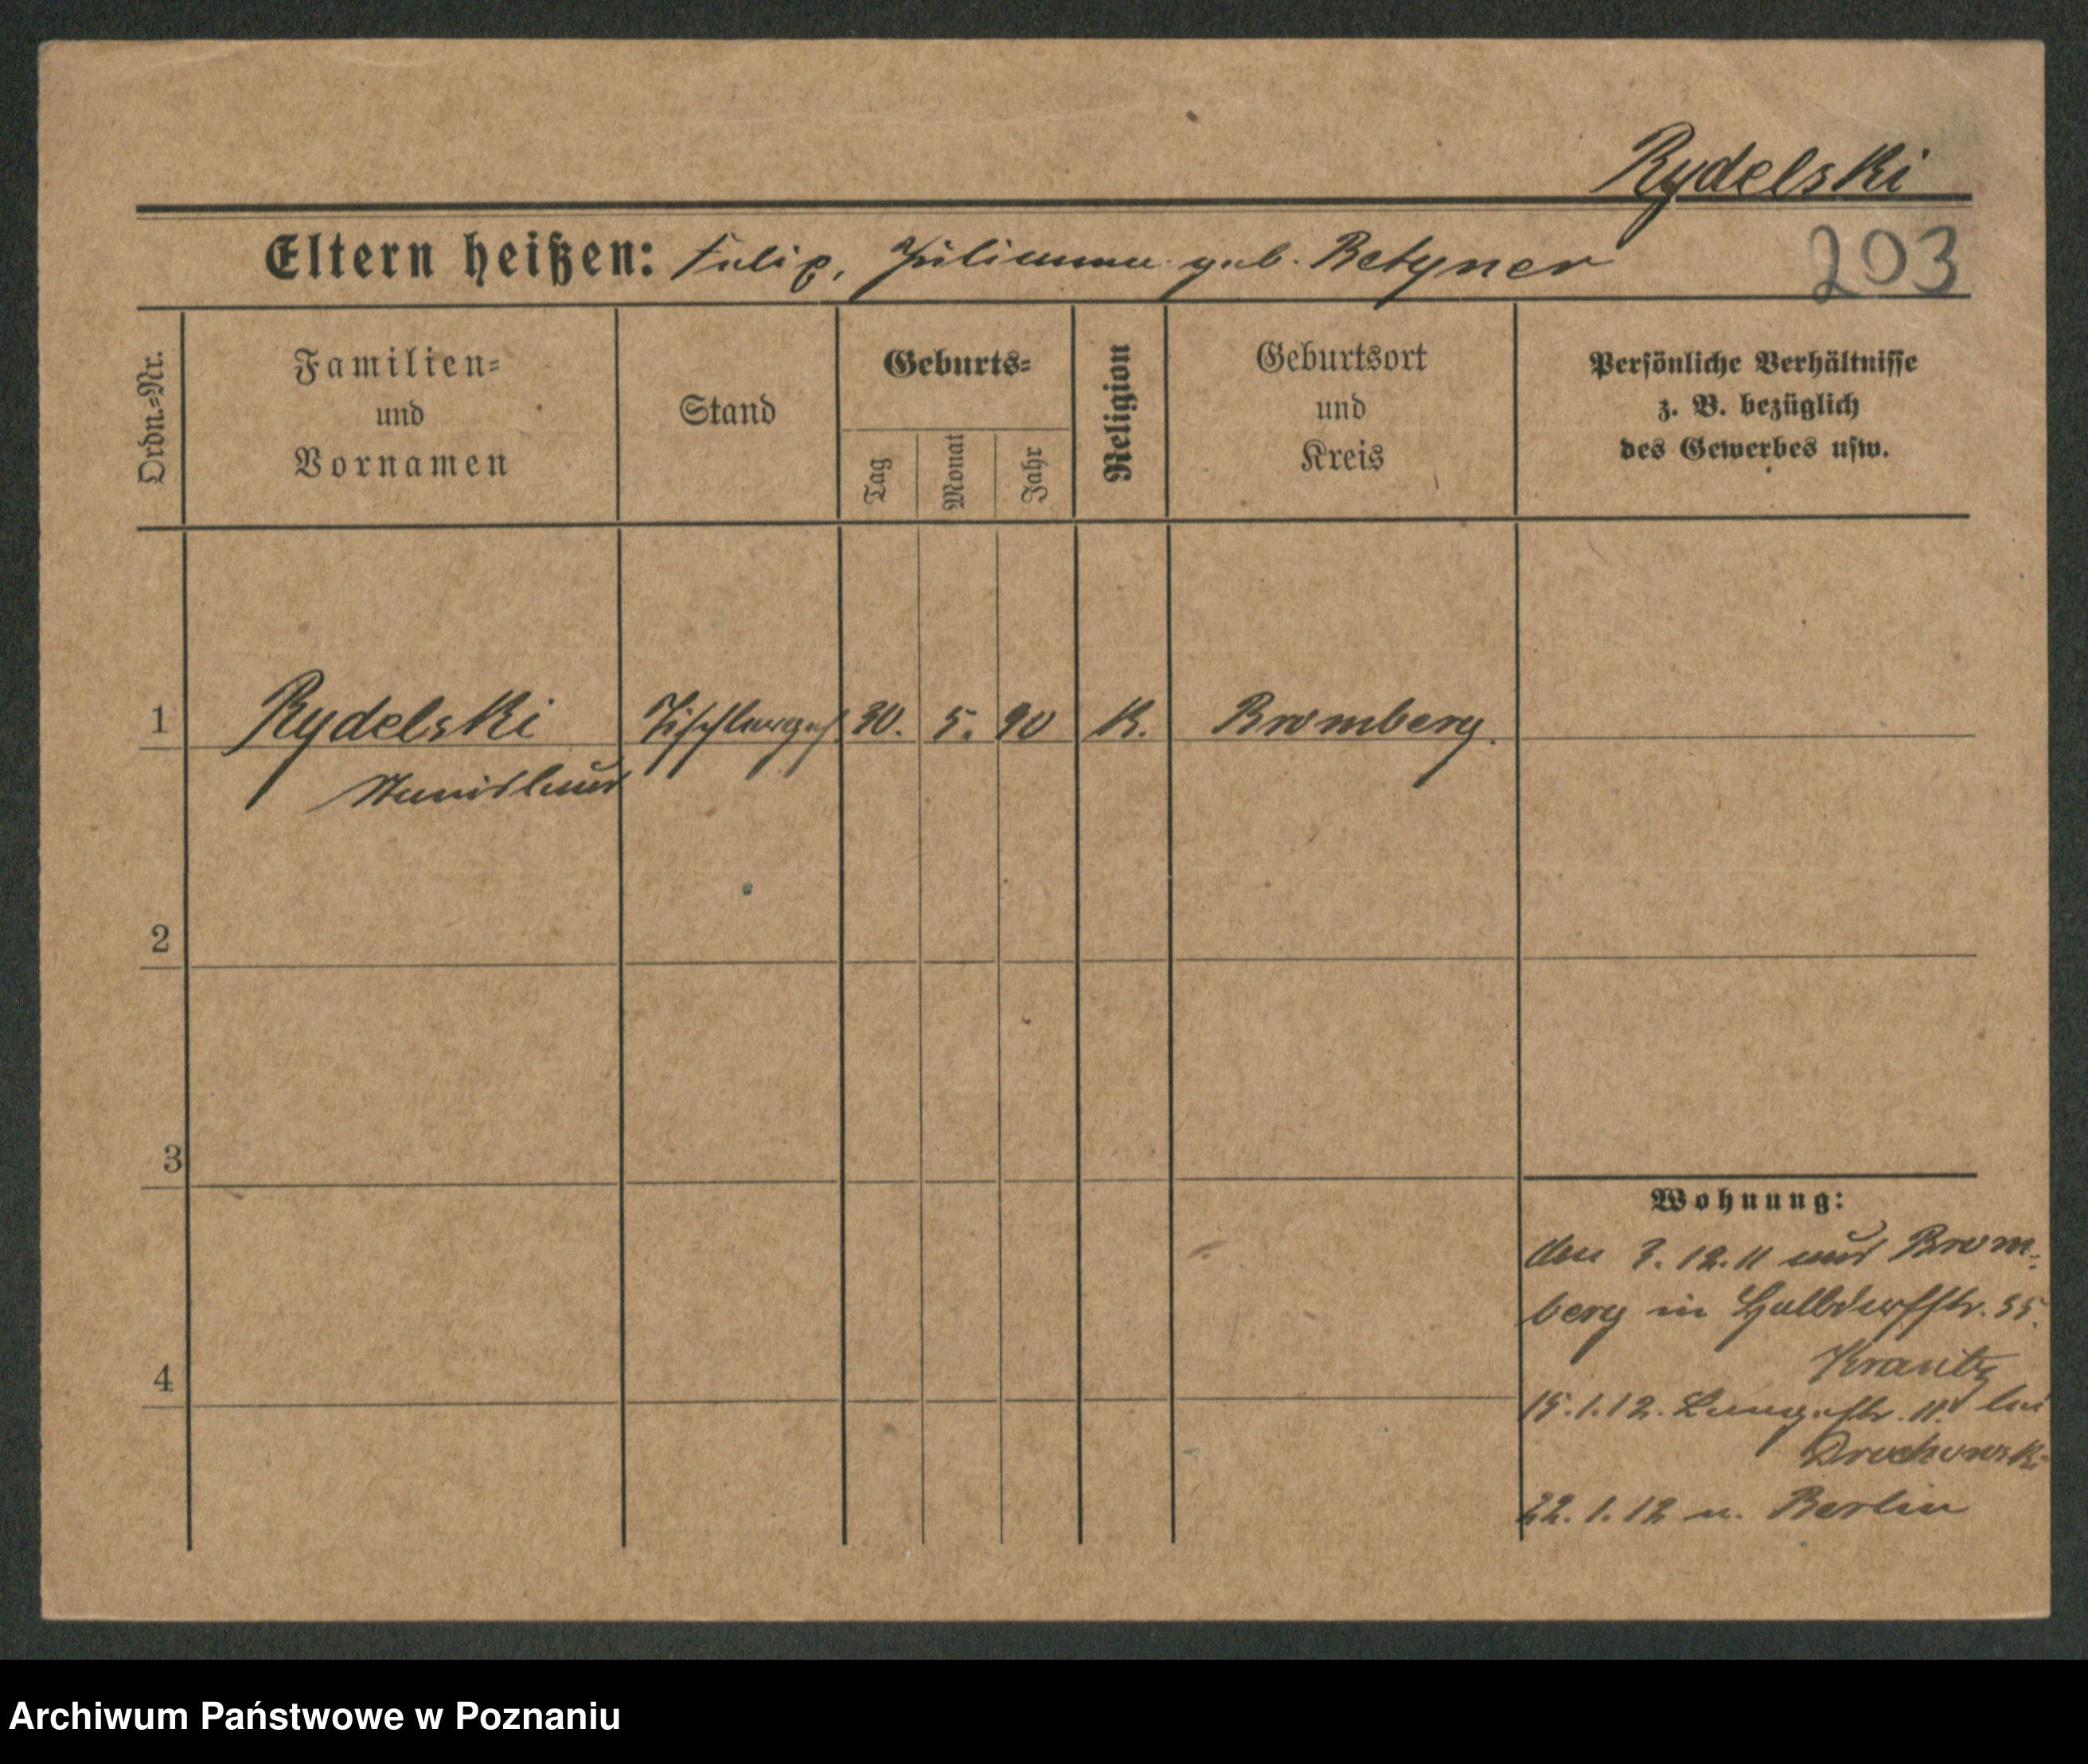 Rydelski
Eltern heißen: Felix, Julianna geb. Retyner
203
Ordn.-Nr.
Familien-
und
Vornamen
Stand
Geburts-
Tag
Monat
Jahr
Religion
Geburtsort
und
Kreis
Persönliche Verhältnisse
z. B. bezüglich
des Gewerbes usw.
1 Rydelski Tischlerges. 30. 5. 90 K. Bromberg.
Stanislaus
2
3
Wohnung:
den 3.12.11 aus Brom-
berg in Halbdorfstr. 35.
Krantz
4
15.1.12. Langestr. 11 bei
Drochowski
22.1.12 n. Berlin
Archiwum Państwowe w Poznaniu